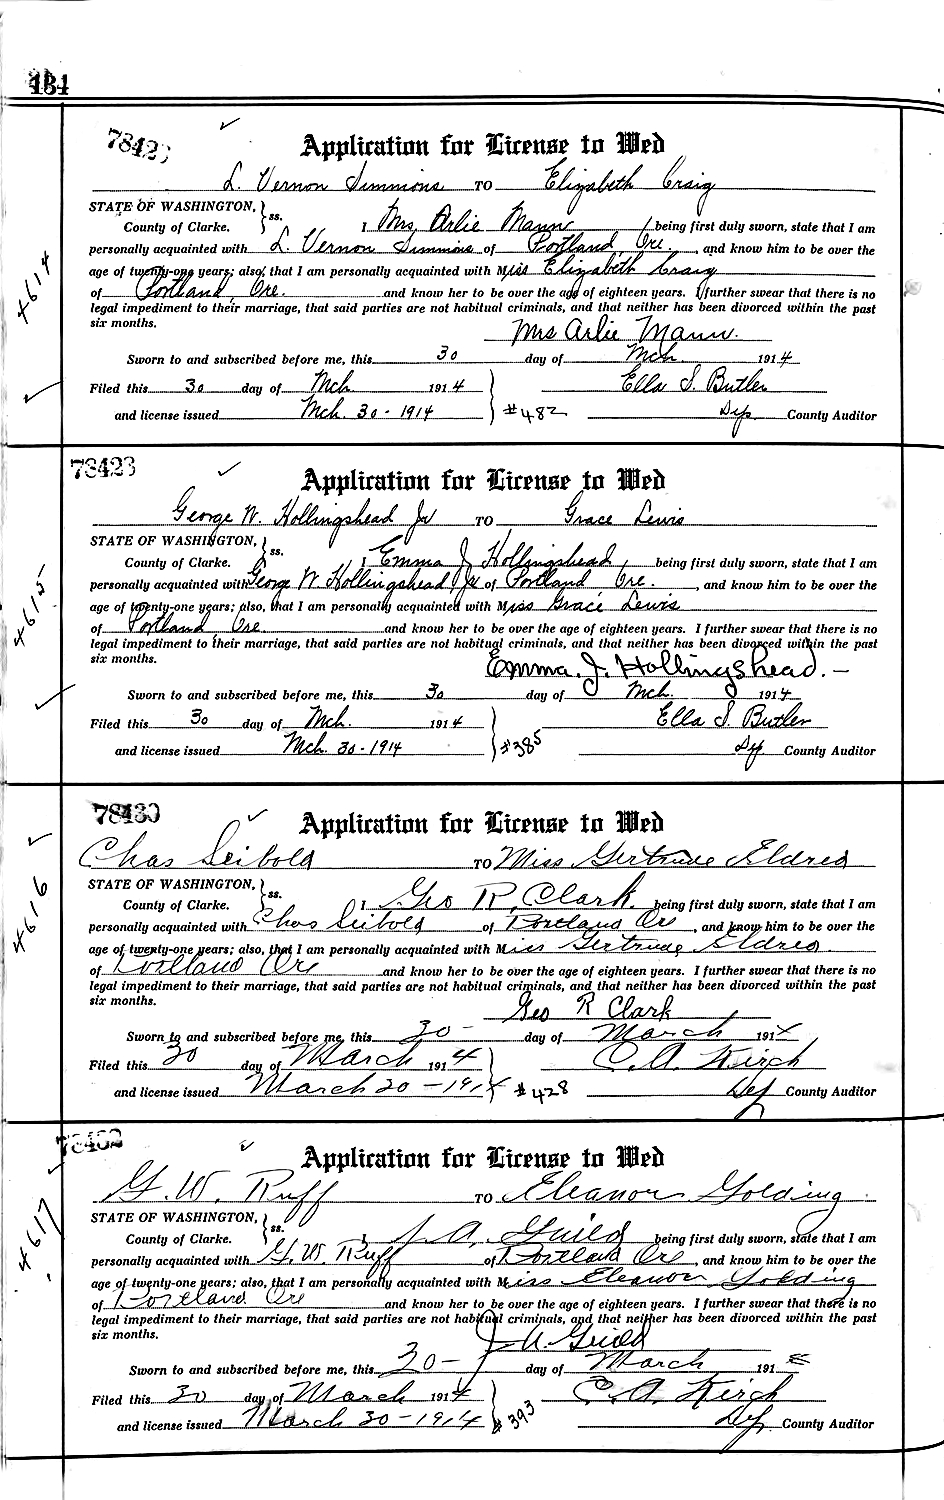 434
78423
Application for License to Wed
L. Vernon Simmons TO Elizabeth Craig
STATE OF WASHINGTON, } ss.
County of Clarke. I Mrs Arlie Mann, being first duly sworn, state that I am
personally acquainted with L. Vernon Simmons of Portland Ore., and know him to be over the
age of twenty-one years; also, that I am personally acquainted with Miss Elizabeth Craig
of Portland, Ore. and know her to be over the age of eighteen years. I further swear that there is no
legal impediment to their marriage, that said parties are not habitual criminals, and that neither has been divorced within the past
six months.
Mrs Arlie Mann.
Sworn to and subscribed before me, this 30 day of Mch 1914
Filed this 30 day of Mch 1914 Ella S. Butler
and license issued Mch. 30 - 1914 #482 Dep County Auditor
4614
78423
Application for License to Wed
George W. Hollingshead Jr TO Grace Lewis
STATE OF WASHINGTON, } ss.
County of Clarke. I Emma J Hollingshead, being first duly sworn, state that I am
personally acquainted with George W. Hollingshead Jr of Portland Ore., and know him to be over the
age of twenty-one years; also, that I am personally acquainted with Miss Grace Lewis
of Portland, Ore. and know her to be over the age of eighteen years. I further swear that there is no
legal impediment to their marriage, that said parties are not habitual criminals, and that neither has been divorced within the past
six months.
Emma. J. Hollingshead. -
Sworn to and subscribed before me, this 30 day of Mch. 1914
Filed this 30 day of Mch. 1914 Ella S. Butler
and license issued Mch. 30 - 1914 #385 Dep County Auditor
4615
78430
Application for License to Wed
Chas Seibold TO Miss Gertrude Eldred
STATE OF WASHINGTON, } ss.
County of Clarke. I Geo R. Clark being first duly sworn, state that I am
personally acquainted with Chas Seibold of Portland Ore, and know him to be over the
age of twenty-one years; also, that I am personally acquainted with Miss Gertrude Eldred
of Portland Ore and know her to be over the age of eighteen years. I further swear that there is no
legal impediment to their marriage, that said parties are not habitual criminals, and that neither has been divorced within the past
six months.
Geo R Clark
Sworn to and subscribed before me, this 30 - day of March 1914
Filed this 30 day of March 1914 C. A. Kirch
and license issued March 30 - 1914 #428 Dep County Auditor
4616
78432
Application for License to Wed
G. W. Ruff TO Eleanor Golding
STATE OF WASHINGTON, } ss.
County of Clarke. I J. A. Guild being first duly sworn, state that I am
personally acquainted with G. W. Ruff of Portland Ore, and know him to be over the
age of twenty-one years; also, that I am personally acquainted with Miss Eleanor Golding
of Portland Ore and know her to be over the age of eighteen years. I further swear that there is no
legal impediment to their marriage, that said parties are not habitual criminals, and that neither has been divorced within the past
six months.
J A Guild
Sworn to and subscribed before me, this 30 - day of March 191
Filed this 30 day of March 1914 C. A. Kirch
and license issued March 30 - 1914 #393 Dep County Auditor
4617